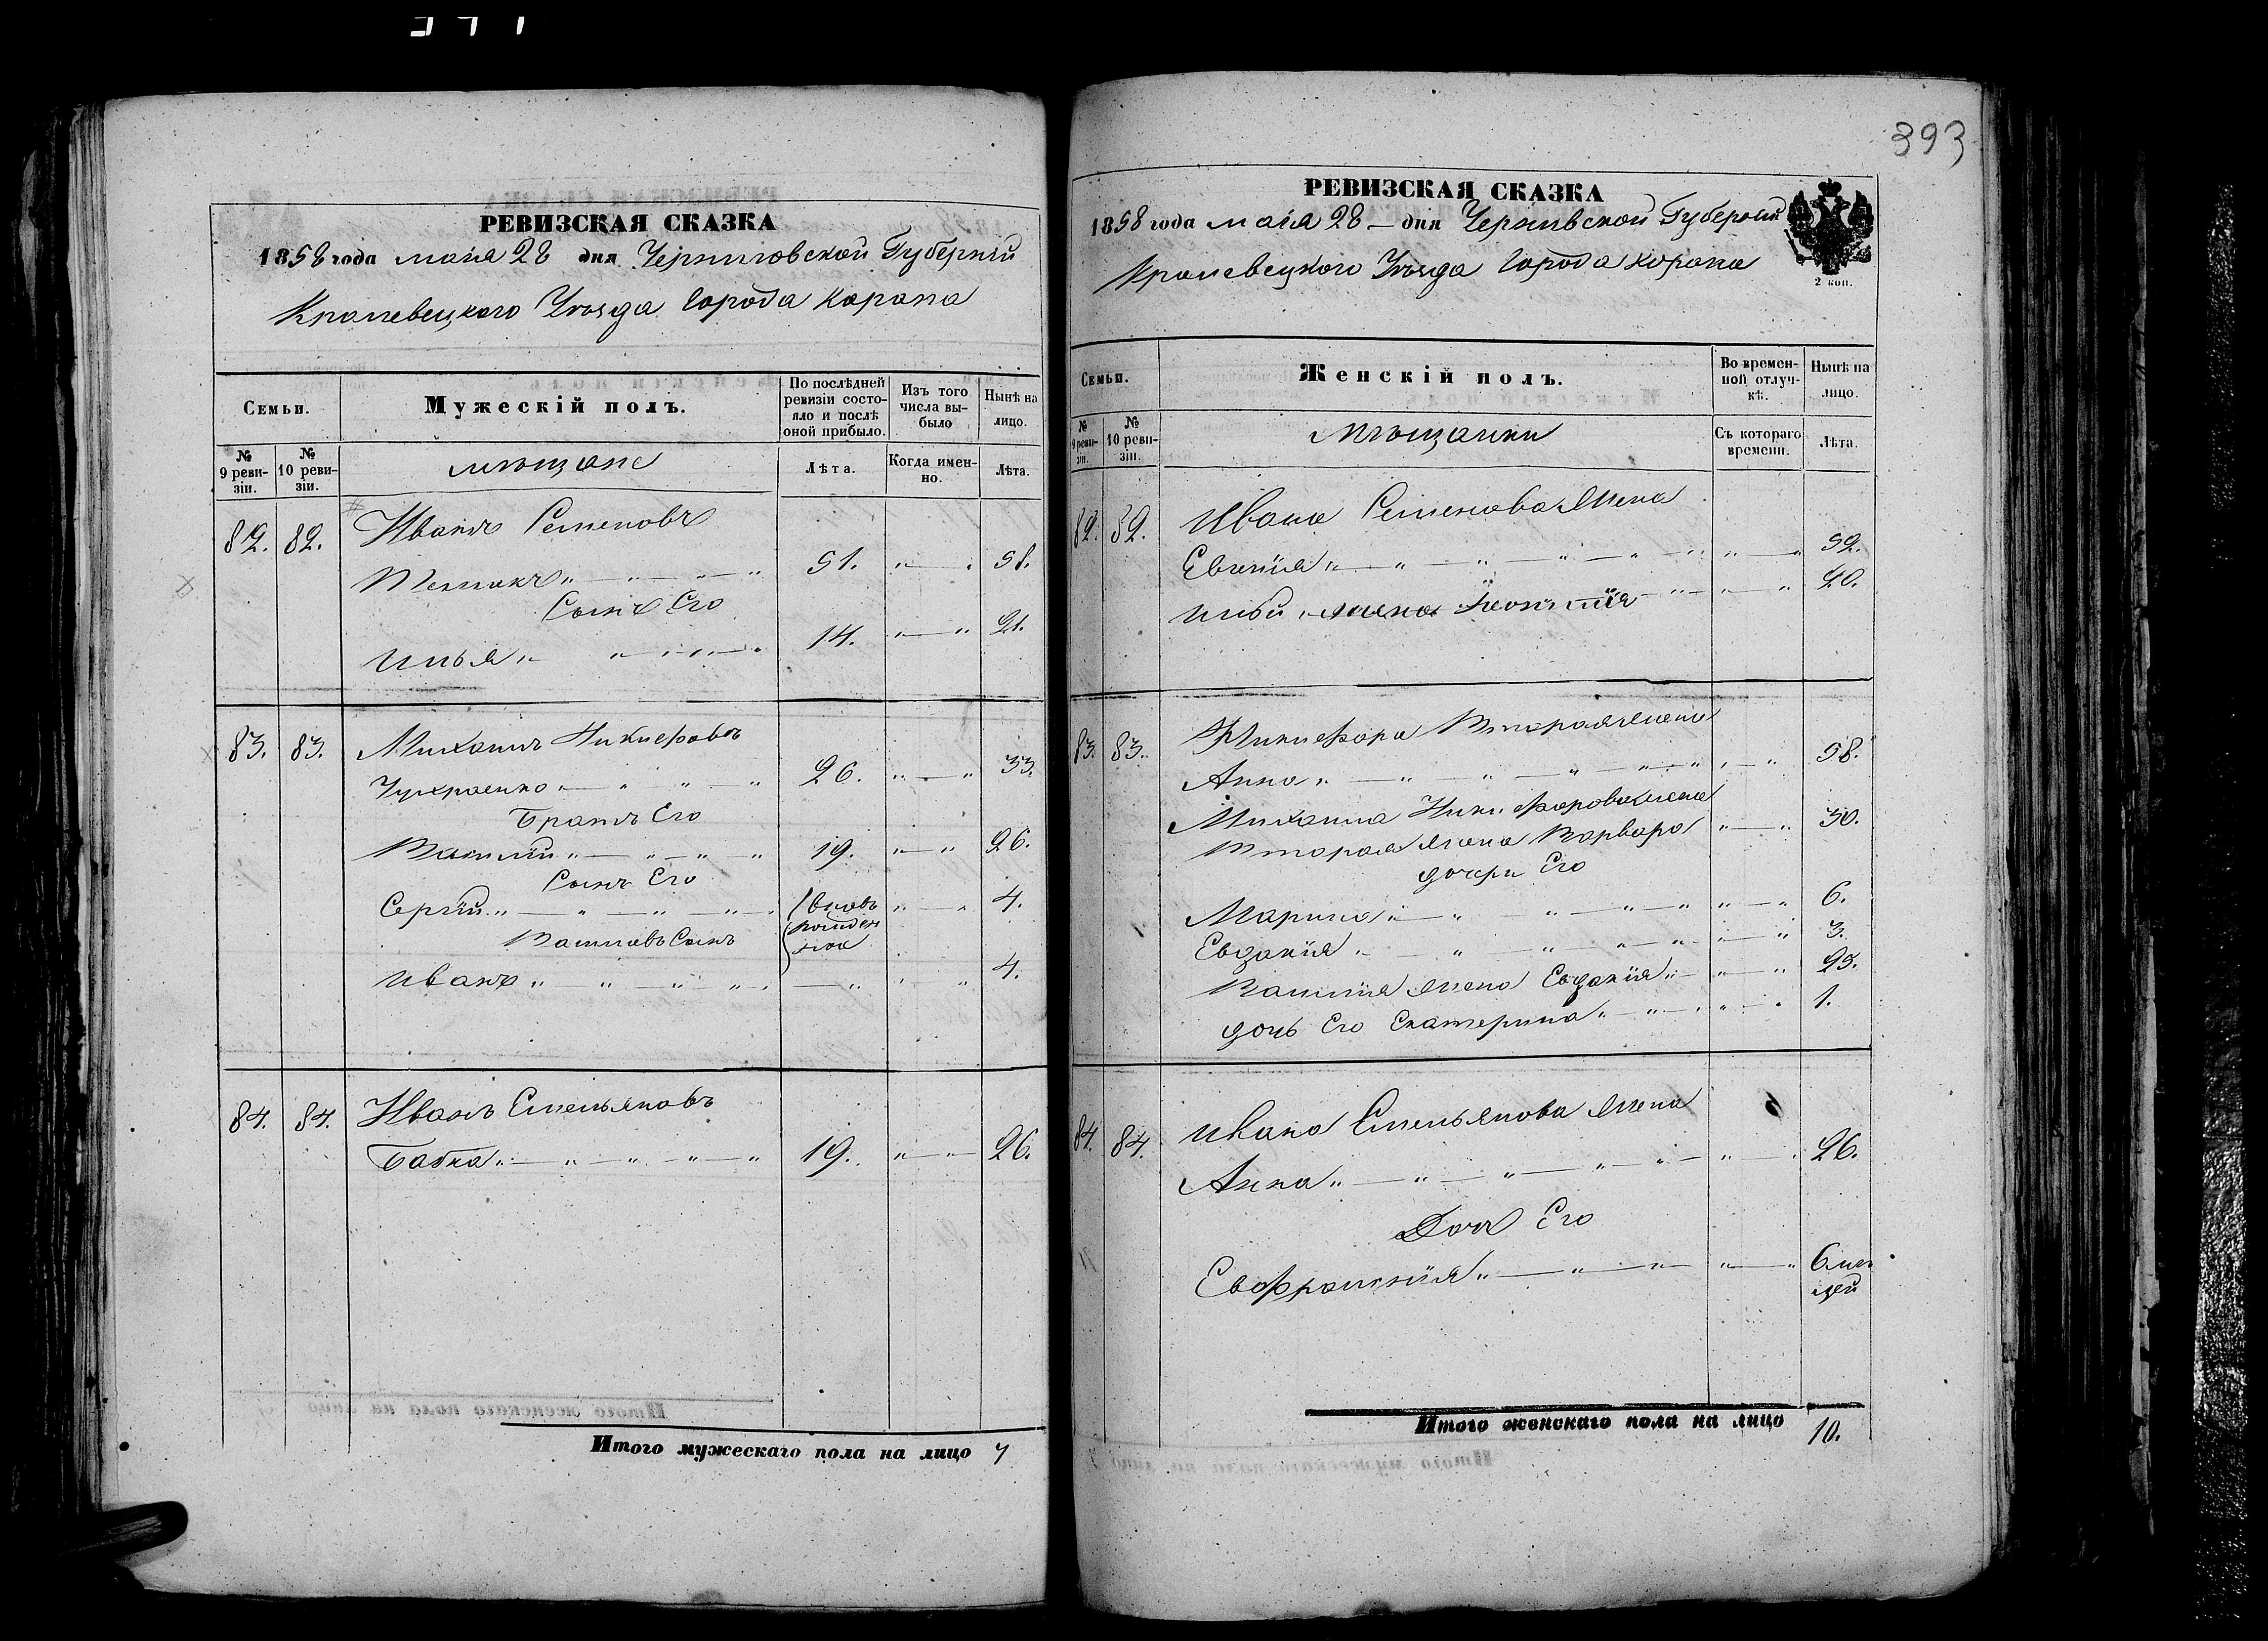 РЕВИЗСКАЯ СКАЗКА
1858 года маія 28 дня Черниговской Губерніи
Кролевецкого Уѣзда города Коропа
Семьи.
Мужескій полъ.
По послѣдней ревизіи состояло и послѣ оной прибыло.
Изъ того числа выбыло
Нынѣ на лицо.
№ 9 ревизіи.
№ 10 ревизіи.
мѣщане
Лѣта.
Когда именно.
Лѣта.
82. 82. Иванъ Семеновъ
51. „ — „ 58.
Сынъ Его
Илья „ „ — „ — „ 14. „ — „ 21.
83. 83. Михаилъ Никифоровъ
Чухраенко „ — „ „ — „ 26. „ — „ 33.
Братъ Его
Василий „ — „ — „ „ 19. „ — „ 26.
Сынъ Его
Сергій „ — „ — „ — „ вновь „ — „ 4.
Васильевъ Сынъ рожден
ные
Иванъ „ „ — „ — „ — „ „ „ 4.
84. 84. Иванъ Емельяновъ
Бабка „ — „ — „ — „ — „ 19. „ — „ 26.
Итого мужескаго пола на лицо 7
393
РЕВИЗСКАЯ СКАЗКА
1858 года маія 28 — дня Черниговской Губерніи
Кролевецкого Уѣзда города Коропа
2 коп.
Семьи.
Женскій полъ.
Во временной отлучкѣ.
Нынѣ на лицо.
№ 9 ревизіи.
№ 10 ревизіи.
мѣщанки
Съ котораго времени.
Лѣта.
82. 82. Ивана Семенова жена
Евгенія „ — „ — „ — „ — „ „ — „ 52.
Ильи жена „ — „ „ — „ 20.
83. 83. Никифора вторая жена
Анна „ — „ — „ — „ — „ „ — „ 58.
Михаила Никифорова жена
вторая жена Варвара „ — „ 30.
дочери Его
Марина „ — „ „ — „ — „ „ — „ 6.
Евдокія „ — „ — „ — „ — „ „ — „ 3.
Василія жена Евдокія „ — „ — „ 25.
дочь Его Екатерина „ — „ — „ „ — „ 1.
84. 84. Ивана Емельянова жена
Анна „ — „ — „ — „ — „ — „ — „ 26.
Дочь Его
Евфросинія „ — „ — „ „ — „ 6 мѣ
сяцей
Итого женскаго пола на лицо 10.